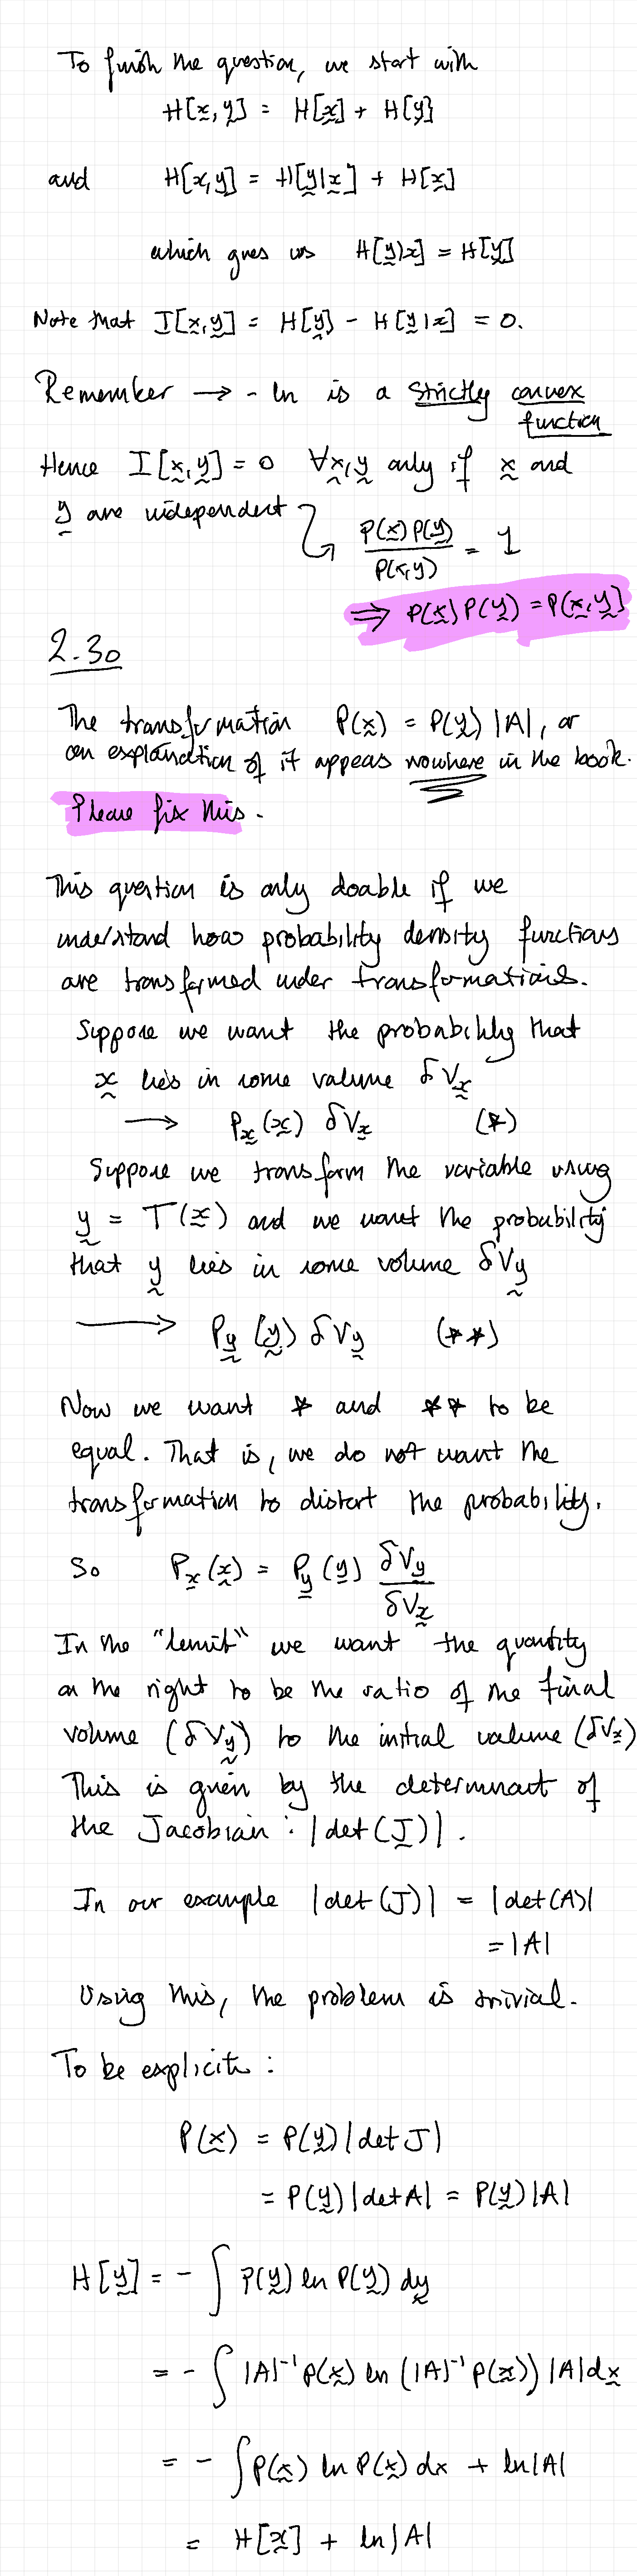 To finish the question, we start with
H[x,y] = H[x] + H[y]
and H[x,y] = H[y|x] + H[x]
which gives us H[y|x] = H[y]
Note that I[x,y] = H[y] - H[y|x] = 0.
Remember → - ln is a strictly convex
function
Hence I[x,y] = 0 ∀x,y only if x and
y are independent
P(x)P(y)/P(x,y) = 1
⇒ P(x)P(y) = P(x,y)
2.30
The transformation P(x) = P(y)|A|, or
an explanation of it appears nowhere in the book.
Please fix this.
This question is only doable if we
understand how probability density functions
are transformed under transformations.
Suppose we want the probability that
x lies in some volume δVx
→ Px(x) δVx (*)
Suppose we transform the variable using
y = T(x) and we want the probability
that y lies in some volume δVy
→ Py(y) δVy (**)
Now we want * and ** to be
equal. That is, we do not want the
transformation to distort the probability.
So Px(x) = Py(y) δVy/δVx
In the "limit" we want the quantity
on the right to be the ratio of the final
volume (δVy) to the initial volume (δVx)
This is given by the determinant of
the Jacobian : |det(J)|.
In our example |det(J)| = |det(A)|
= |A|
Using this, the problem is trivial.
To be explicit :
P(x) = P(y)|det J|
= P(y)|det A| = P(y)|A|
H[y] = - ∫ P(y) ln P(y) dy
= - ∫ |A|⁻¹ P(x) ln (|A|⁻¹ P(x)) |A| dx
= - ∫ P(x) ln P(x) dx + ln|A|
= H[x] + ln|A|